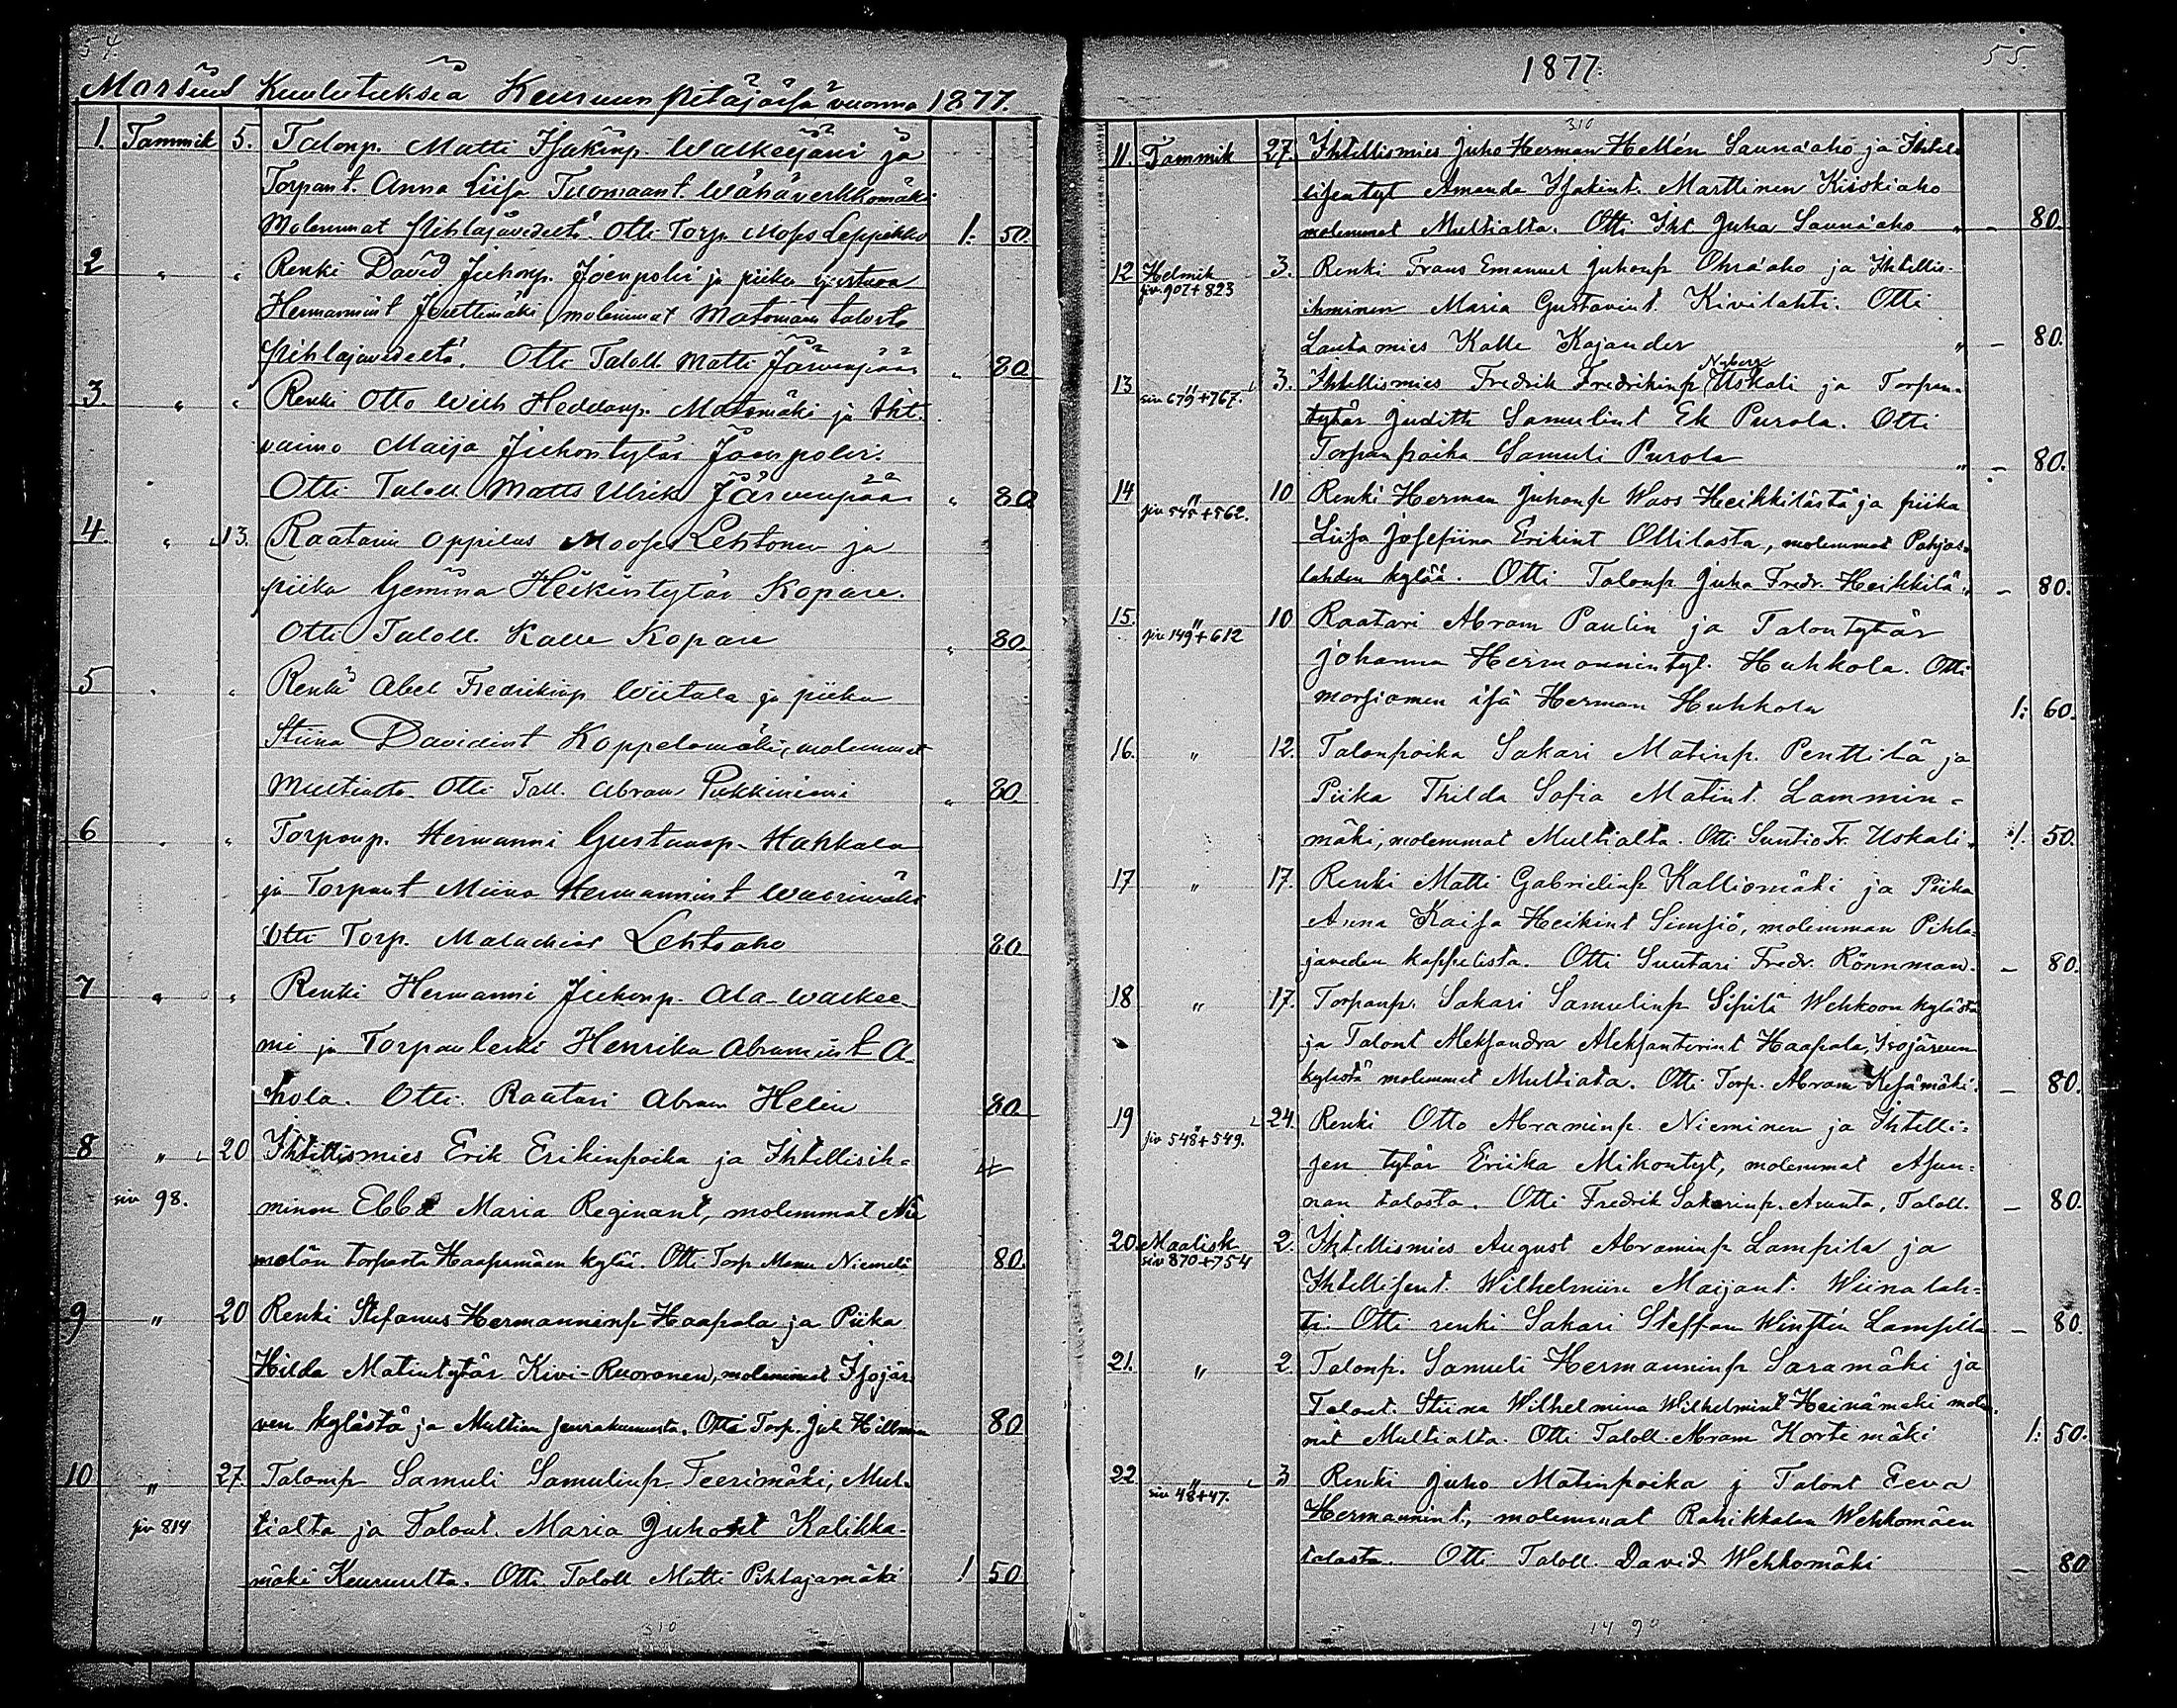 54.
Morsius Kuulutuksia Keuruun pitäjäsä vuonna 1877.
1. Tammik 5. Talonp. Matti Isakinp. Walkeejärvi ja
Torpant. Anna Liisa Tuomaant. Wähäverkkomäki
Molemmat Pihlajavedeltä. Otti Torp. Moses Leppikko 1: 50.
2 " " Renki David Juhonp. Joenpolvi ja piika
Hermannint Jouttimäki, molemmat Matomäen talosta
Pihlajavedeltä. Otti Taloll. Matti Järvenpää " 80
3. " " Renki Otto Wilh Heddanp. Matomäki ja Iht.
vaimo Maija Juhontytär Joenpolvi.
Otti Taloll. Matts Ulrik Järvenpää " 80.
4. " 13. Raatarin oppilas Mooses Lehtonen ja
piika Gemina Heikintytär Kopare.
Otti Taloll. Kalle Kopare " 80.
5 " " Renki Abel Fredrikinp. Wiitala ja piika
Stiina Davidint Koppelomäki, molemmat
Multialta. Otti Tall. Abram Pukkiniemi " 80.
6 " " Torpanp. Hermanni Gustaanp. Hakkala
ja Torpant Miina Hermannint Wuorimäki
Otti Torp. Malachias Lehtoaho 80.
7 " " Renki Hermanni Juhonp. Ala-Walkee-
mi ja Torpanleski Henrika Abramint A-
hola. Otti Raatari Abram Helin 80
8 " 20 Ihtellismies Erik Erikinpoika ja Ihtellisih-
siv 98. minen Ebba Maria Reginant, molemmat Nie
melän torpasta Haapamäen kylää. Otti Torp. Manu Niemelä 80.
9 " 20 Renki Stefanus Hermanninp Haapala ja Piika
Hilda Matintytär Kivi-Ruoranen, molemmat Isojär
ven kylästä ja Multian seurakunnasta. Otti Torp. Juh Hillman 80
10 " 27. Talonp Samuli Samulinp. Teerimäki, Mul-
siv 814 tialta ja Talont. Maria Juhont Kalikka-
mäki Keuruulta. Otti Taloll Matti Pihlajamäki 1 50
310
1877.
55.
310
11. Tammik 27. Ihtellismies Juho Herman Hellén Sauna'aho ja Ihtel-
lisentyt Amanda Isakint. Marttinen Kiiskiaho
molemmat Multialta. Otti Iht Juha Sauna'aho " – 80.
12 Helmik 3. Renki Frans Emanuel Juhonp Ohra'aho ja Ihtellis-
siv. 907+823
ihminen Maria Gustavint. Kivilahti. Otti
Lautamies Kalle Kajander " – 80.
Nyberg
13 " 3. Ihtellismies Fredrik Fredrikinp Uskali ja Torpan-
siv 679+767.
tytär Judith Samulint Ek Purola. Otti
Torpanpoika Samuli Purola " – 80.
14 " 10 Renki Herman Juhonp Wass Heikkilästä ja piika
siv 545+562.
Liisa Josefiina Erikint Ollilasta, molemmat Pohjos-
lahden kylää. Otti Talonp Juha Fredr. Heikkilä " – 80.
15. " 10 Raatari Abram Paulin ja Talontytär
siv 149+612
Johanna Hermannintyt. Huhkola. Otti
morsiamen isä Herman Huhkola 1: 60.
16. " 12. Talonpoika Sakari Matinp. Penttilä ja
Piika Thilda Sofia Matint. Lammin-
mäki, molemmat Multialta. Otti Suntio Fr. Uskali. 1. 50.
17 " 17. Renki Matti Gabrielinp Kalliomäki ja Piika
Anna Kaisa Heikint Simsiö, molemman Pihla-
javeden kappelista. Otti Suutari Fredr. Rönnman. – 80.
18 " 17. Torpanp. Sakari Samulinp Sipilä Wehkoon kylästä
ja Talont Aleksandra Aleksanterint Haapala, Isojärven
kylästä molemmat Multiata. Otti Torp. Abram Kesämäki. – 80.
19 " 24. Renki Otto Abraminp. Nieminen ja Ihtelli-
siv 548+549.
sen tytär Eriika Mikontyt, molemmat Asun-
nan talosta. Otti Fredrik Sakarinp. Asunta, Taloll. – 80.
20. Maalisk 2. Ihtellismies August Abraminp Lampila ja
siv 870+754
Ihtellisent. Wilhelmiin Maijant. Wiinalah-
ti. Otti renki Sakari Steffan Winstén Lampila – 80.
21. " 2. Talonp. Samuli Hermanninp Saramäki ja
Talont. Stiina Wilhelmina Wilhelmint Heinämäki mole
mat Multialta. Otti Taloll. Abram Kortemäki 1: 50.
22 " 3 Renki Juho Matinpoika j Talont Eeva
siv 48+47.
Hermannint, molemmat Rahikkalan Wehkomäen
talosta. Otti Taloll. David Wehkomäki – 80
14 90